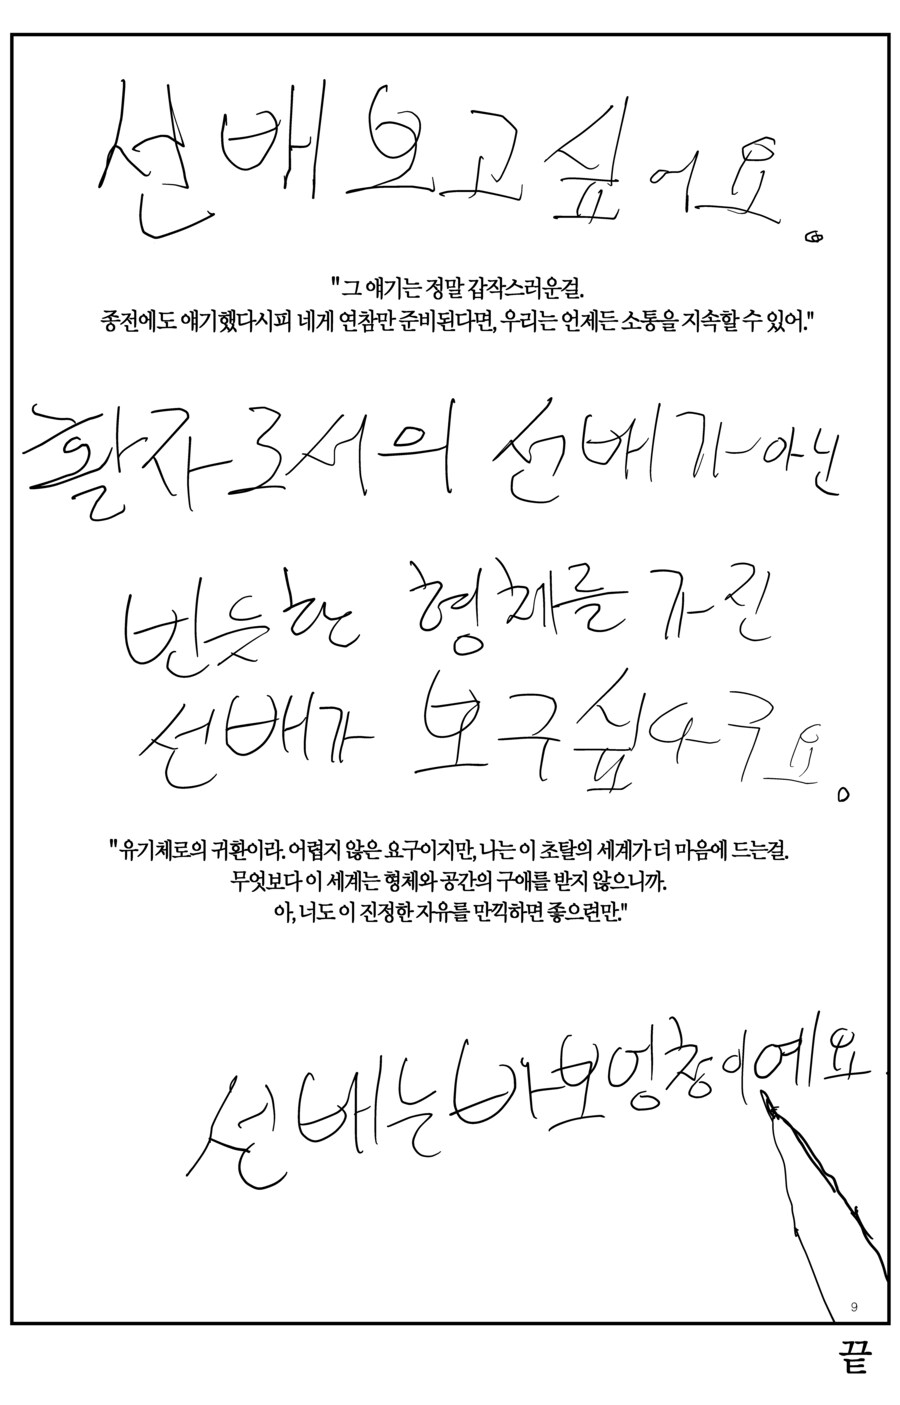 선배 보고싶어요.
"그 얘기는 정말 갑작스러운걸.
종전에도 얘기했다시피 네게 연참만 준비된다면, 우리는 언제든 소통을 지속할 수 있어."
활자로서의 선배가 아닌
번듯한 형체를 가진
선배가 보구싶다구요.
"유기체로의 귀환이라. 어렵지 않은 요구이지만, 나는 이 초탈의 세계가 더 마음에 드는걸.
무엇보다 이 세계는 형체와 공간의 구애를 받지 않으니까.
아, 너도 이 진정한 자유를 만끽하면 좋으련만."
선배는 바보 멍청이예요
9
끝